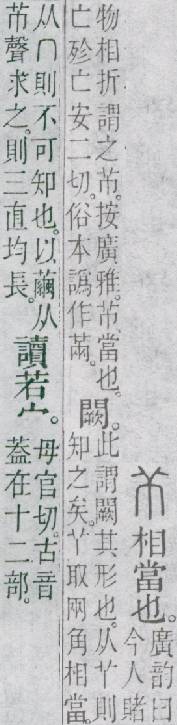 芇相當也。
廣韵曰
今人賭
物相折謂之芇。按廣雅。芇、當也。
亡殄亡安二切。俗本譌作㒼。
闕。
此謂闕其形也。从𦫳則
知之矣。𦫳取网角相當。
从冂則不可知也。以繭从
芇聲求之。則三直均長。
讀若宀。
母官切。古音
葢在十二部。